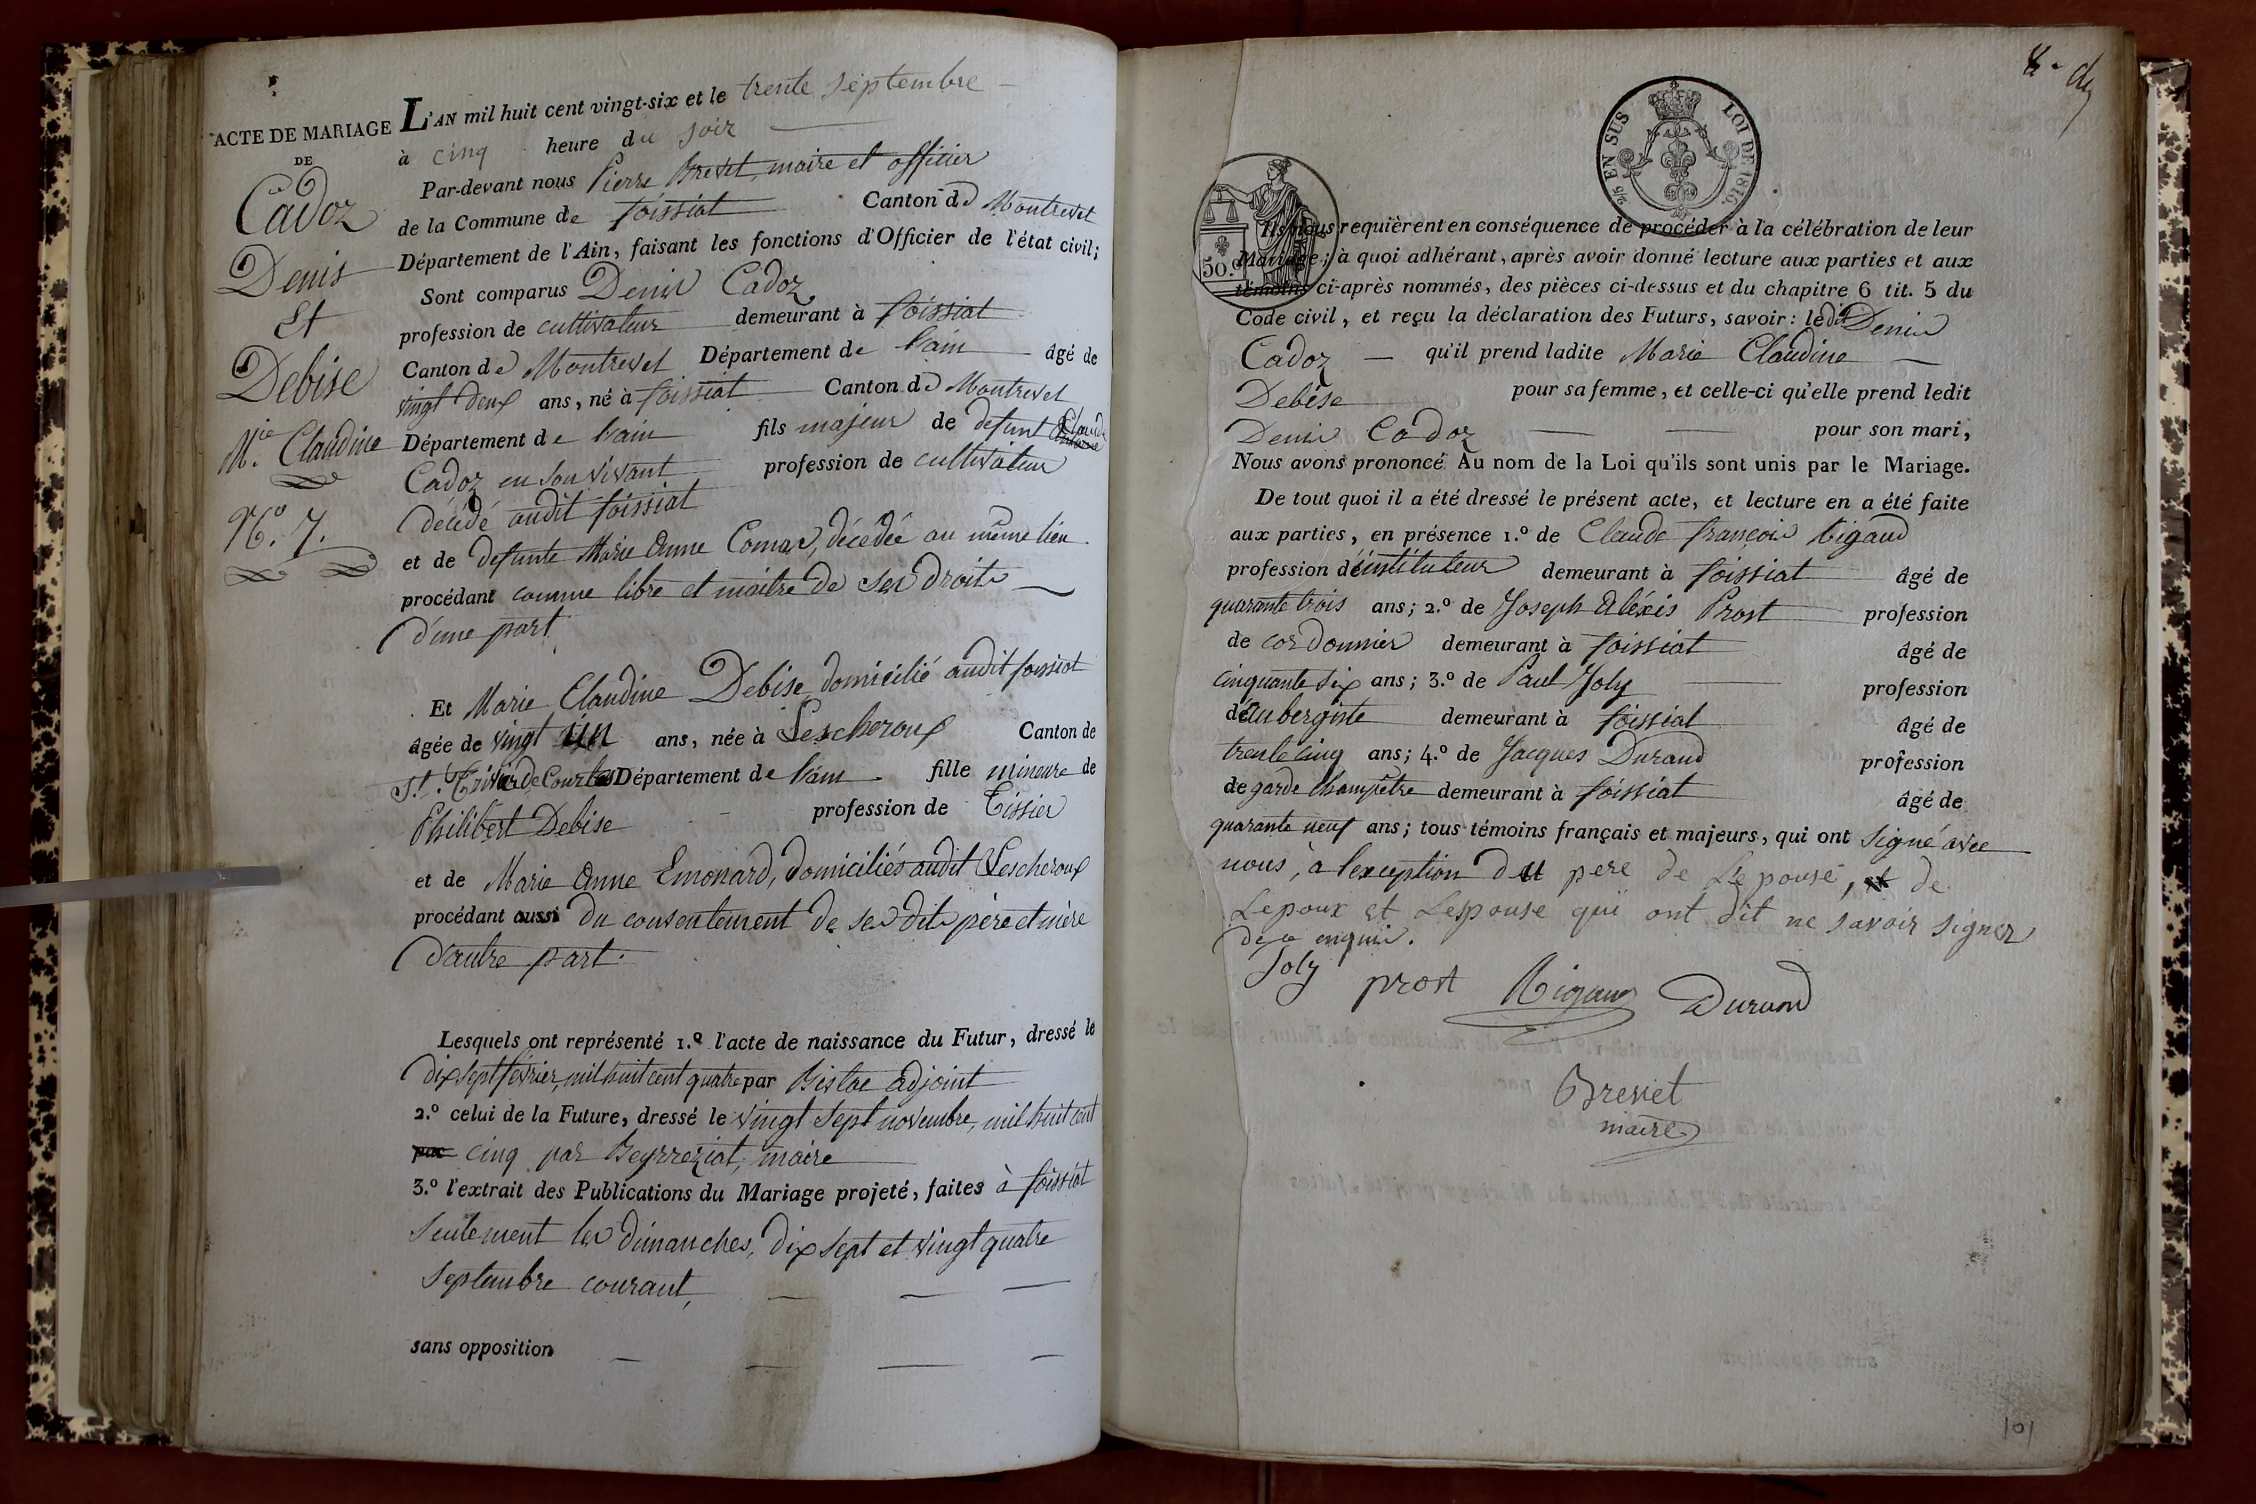 ACTE DE MARIAGE
DE
Cadoz
Denis
Et
Debise
M.ie Claudine
N.o 7.
L'AN mil huit cent vingt-six et le trente septembre
à cinq heure du soir
Par-devant nous Pierre Brevet, maire et officier
de la Commune de foissiat Canton de Montrevel
Département de l'Ain, faisant les fonctions d'Officier de l'état civil;
Sont comparus Denis Cadoz
profession de cultivateur demeurant à foissiat
Canton de Montrevel Département de l'ain âgé de
vingt deux ans, né à foissiat Canton de Montrevel
Département de l'ain fils majeur de defunt Claude
Cadoz en son vivant profession de cultivateur
décédé audit foissiat
et de defunte Marie Anne Comas, décédée au même lieu
procédant comme libre et maitre de ses droits
d'une part.
Et Marie Claudine Debise domicilié audit foissiat
âgée de vingt un ans, née à Lescheroux Canton de
St. Trivier de Courtes Département de l'ain fille mineure de
Philibert Debise profession de Tissier
et de Marie Anne Emonard, domiciliés audit Lescheroux
procédant aussi du consentement de ses dits père et mère
d'autre part.
Lesquels ont représenté 1.o l'acte de naissance du Futur, dressé le
dix sept fevrier, mil huit cent quatre par adjoint
2.o celui de la Future, dressé le vingt sept novembre, mil huit cent
par cinq par Beyrreziat, maire
3.o l'extrait des Publications du Mariage projeté, faites à foissiat
Seulement les dimanches, dix sept et vingt quatre
septembre courant,
sans opposition
2/5 EN SUS LOI DE 1816.
50.c
Ils nous requièrent en conséquence de procéder à la célébration de leur
Mariage; à quoi adhérant, après avoir donné lecture aux parties et aux
témoins ci-après nommés, des pièces ci-dessus et du chapitre 6 tit. 5 du
Code civil, et reçu la déclaration des Futurs, savoir: ledit Denis
Cadoz qu'il prend ladite Marie Claudine
Debise pour sa femme, et celle-ci qu'elle prend ledit
Denis Cadoz pour son mari,
Nous avons prononcé Au nom de la Loi qu'ils sont unis par le Mariage.
De tout quoi il a été dressé le présent acte, et lecture en a été faite
aux parties, en présence 1.o de Claude françois Rigaud
profession d'instituteur demeurant à foissiat âgé de
quarante trois ans; 2.o de Joseph Aléxis Prost profession
de cordonnier demeurant à foissiat âgé de
cinquante six ans; 3.o de Paul Joly profession
d'aubergiste demeurant à foissiat âgé de
trente cinq ans; 4.o de Jacques Durand profession
de garde champêtre demeurant à foissiat âgé de
quarante neuf ans; tous témoins français et majeurs, qui ont signé avec
nous, à l'exception du pere de Lepouse, et de
Lepoux et Lespouse qui ont dit ne savoir signer
de ce enquis.
Joly prost Rigaud Durand
Brevet
maire
101